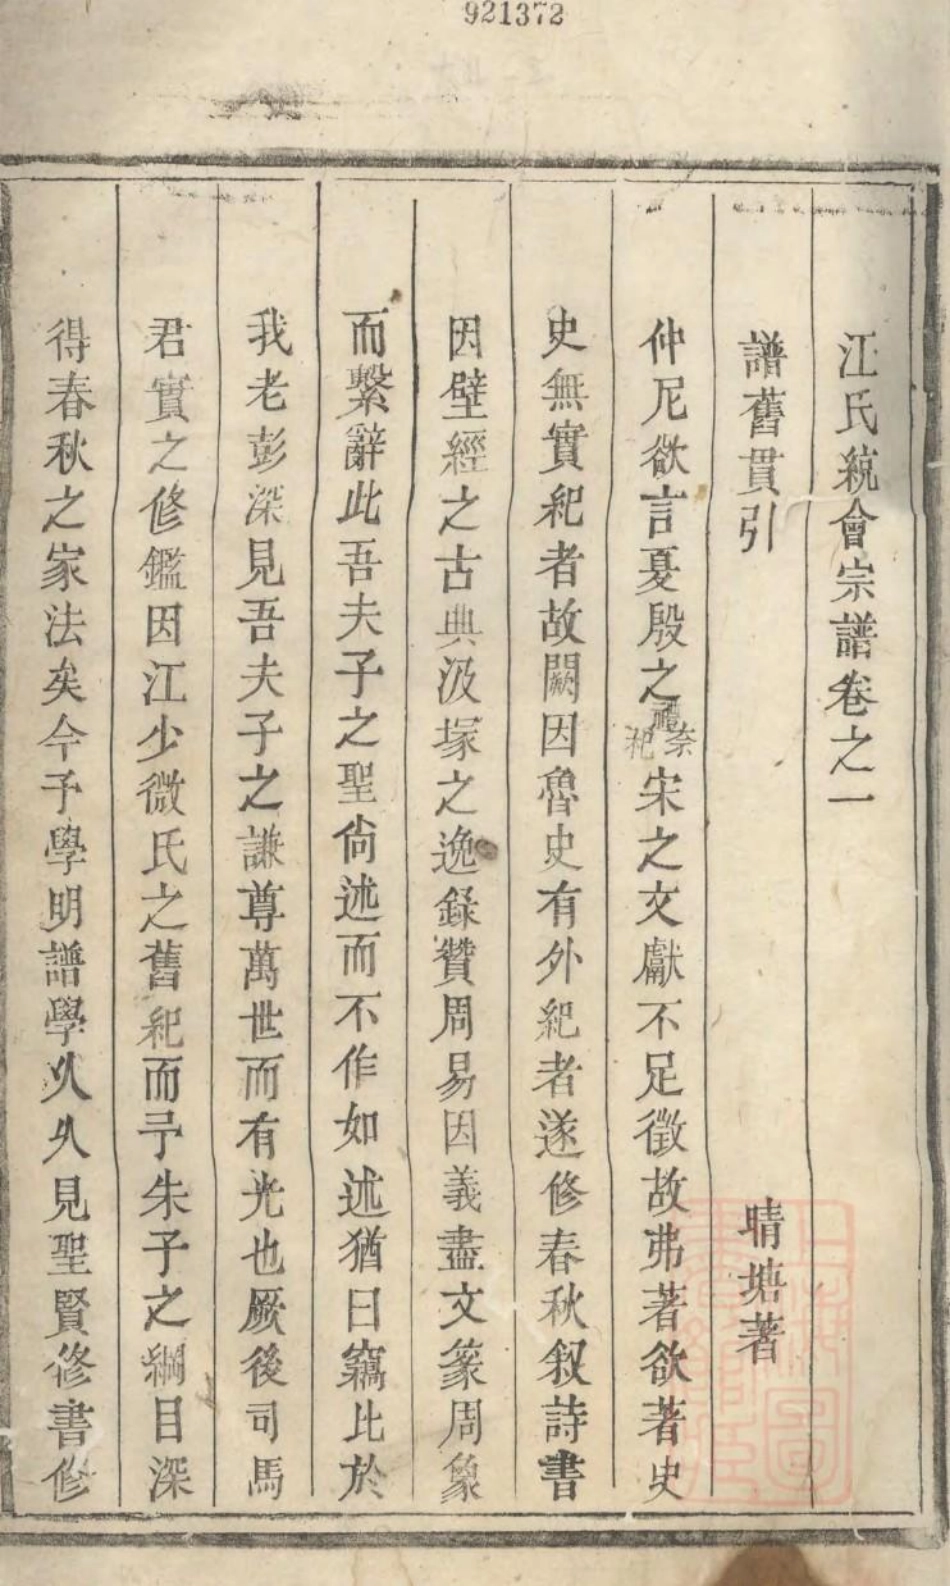 921372
江氏統會宗譜卷之一
譜舊貫引
晴塘著
仲尼欲言夏殷之禮奈杞宋之文獻不足徵故弗著欲著史
史無實紀者故闕因魯史有外紀者遂修春秋叙詩書
因壁經之古典汲塚之逸錄贊周易因義盡文篆周象
而繫辭此吾夫子之聖尚述而不作如述猶曰竊比於
我老彭深見吾夫子之謙尊萬世而有光也厥後司馬
君實之修鑑因江少微氏之舊紀而予朱子之綱目深
得春秋之家法矣今予學明譜學久久見聖賢修書修